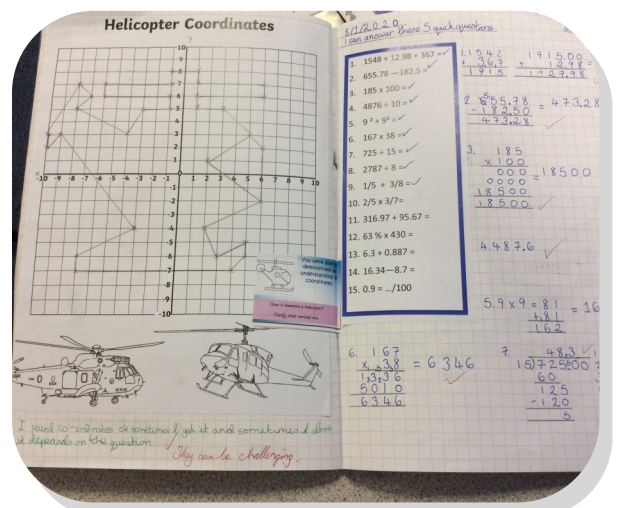 Helicopter Coordinates
?
10
9
8
7
6
5
4
3
2
1
-10 -9 -8 -7 -6 -5 -4 -3 -2 -1 0 1 2 3 4 5 6 7 8 9 10
-1
-2
-3
-4
-5
-6
-7
-8
-9
-10
demonstrate
understanding
coordinates
Does it resemble a helicopter?
Clarify what vertices are.
I found co-ordinates ok sometimes I get it and sometimes I dont
it depends on the question.
They can be challenging.
8/1/2020
I can answer these 5 quick questions
1. 1548 + 12.98 + 367 =
2. 655.78 – 182.5 =
3. 185 x 100 =
4. 4876 ÷ 10 =
5. 9² + 9² =
6. 167 x 38 =
7. 725 ÷ 15 =
8. 2787 ÷ 8 =
9. 1/5 + 3/8 =
10. 2/5 x 3/7=
11. 316.97 + 95.67 =
12. 63 % x 430 =
13. 6.3 + 0.887 =
14. 16.34—8.7 =
15. 0.9 = .../100
1. 1548
+ 367
1915
1915.00
+ 12.98 =
1927.98
2. 655.78 = 473.28
- 182.50
473.28
3. 185
x 100
000
0000 = 18500
18500
18500
4. 487.6
5. 9 x 9 = 81 = 16
+ 81
162
6. 167
x 38 = 6346
1336
5010
6346
7. 48.3
15)725.00
60
125
- 120
5